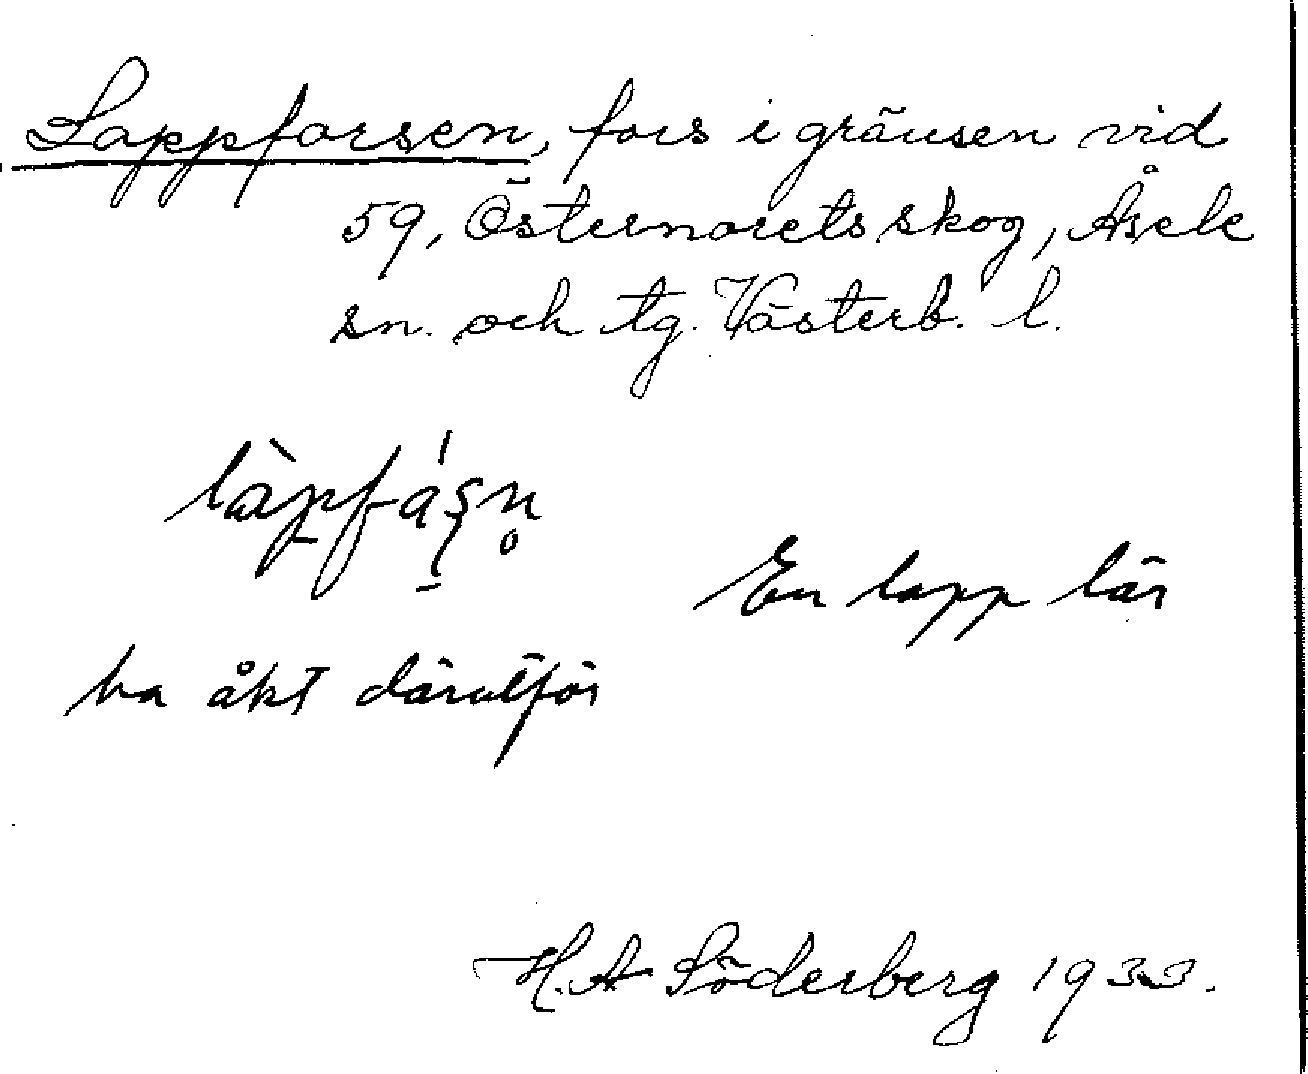 Lappforsen, fors i gränsen vid
59, Östernorets skog, Åsele
sn. och tg. Västerb. l.
làpfás̱n̥
En lapp lär
ha åkt därutför
H. A Söderberg 1933.